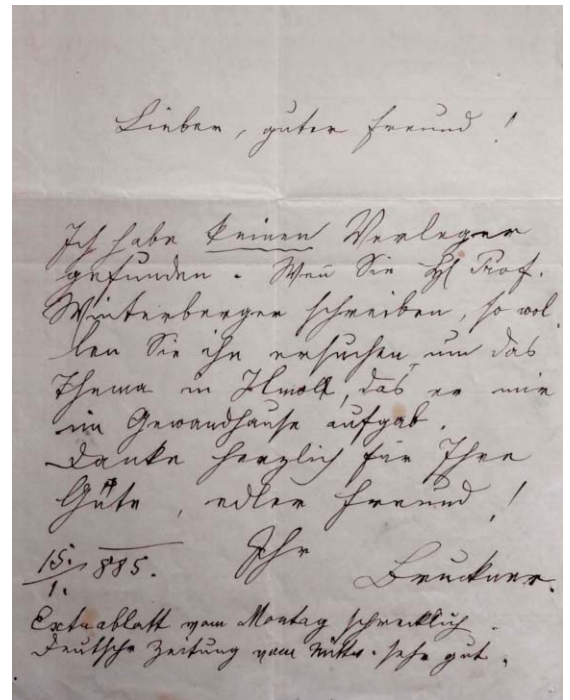 Lieber, guter Freund!
Ich habe keinen Verleger
gefunden. Wenn Sie H Prof.
Winterberger schreiben, so wol
len Sie ihn ersuchen, um das
Thema in Hmoll, das er mir
im Gewandhause aufgab.
Danke herzlich für Ihre
Güte, edler Freund!
15./1. 885. Ihr
Bruckner.
Extrablatt vom Montag schrecklich.
Deutsche Zeitung vom Mittw. sehr gut.